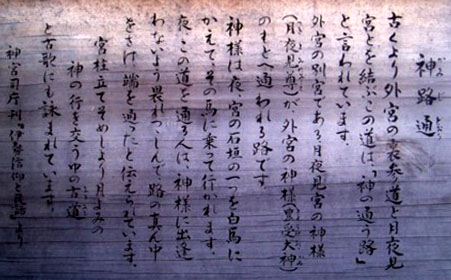 神路通
かみじどおり
古くより外宮の裏参道と月夜見
宮とを結ぶこの道は、「神の通う路」
と言われています。
外宮の別宮である月夜見宮の神様
（月夜見尊）が外宮の神様（豊受大神）
のもとへ通われる路です。
神様は夜、宮の石垣の一つを白馬に
かえてその馬に乗って行かれます。
夜この道を通る人は、神様に出逢
わないよう畏れつつしんで、路の真ん中
をさけ端を通ったと伝えられています。
宮柱立てそめしより月よみの
神の行き交う中の古道
と古歌にも詠まれています。
神宮司庁刊「伊勢信仰と民俗」より